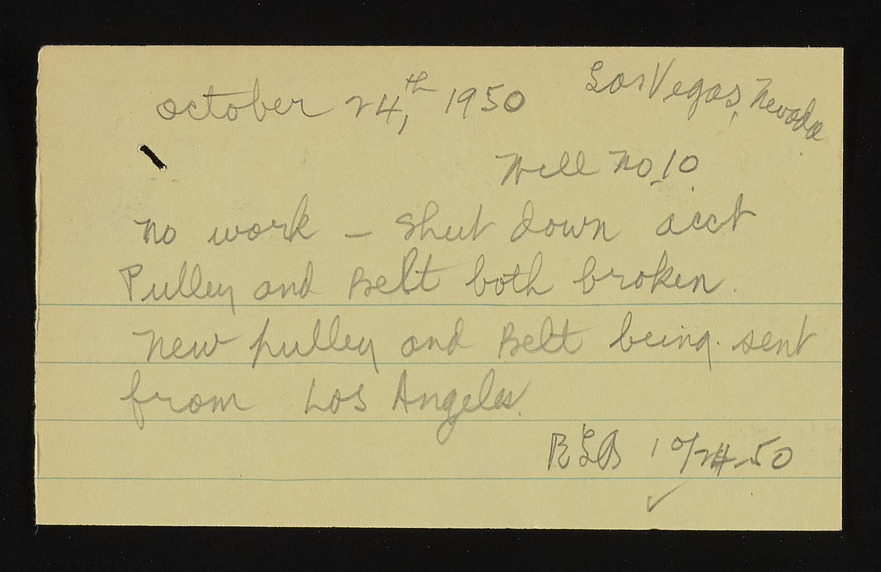 october 24,th 1950 Las Vegas, Nevada
Well No. 10
No work – Shut down acct
Pulley and Belt both broken.
New pulley and Belt being sent
from Los Angeles.
RLB 10/24-50
✓